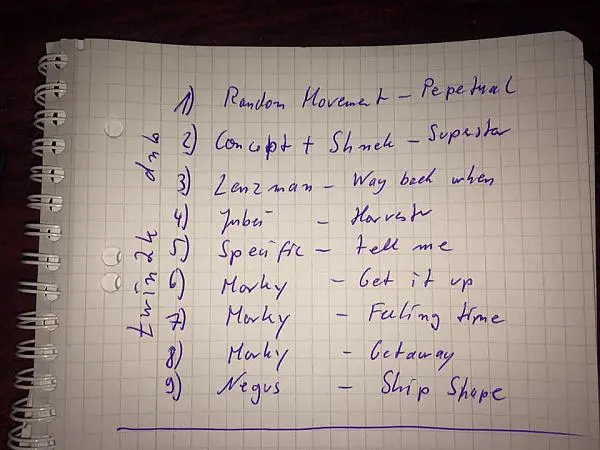 1) Random Movement - Pepetual
2) Concept + Shnek - Supestar
3) Lenzman - Way back when
4) Jubei - Harvestr
5) Specific - tell me
6) Marky - Get it up
7) Marky - Falling time
8) Marky - Getaway
9) Negus - Ship Shape
twin2k dnb